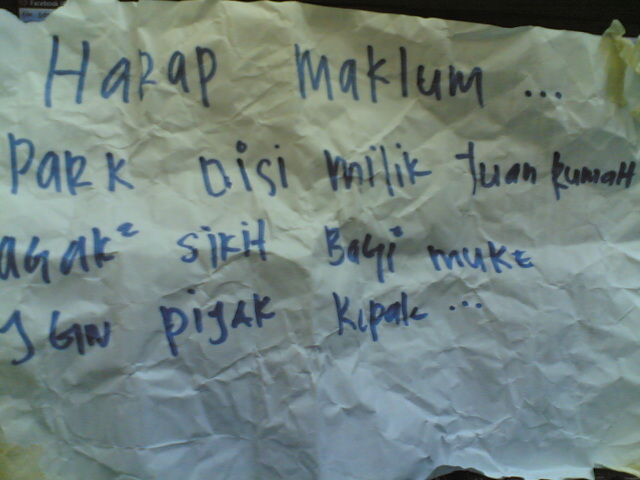 Facebook
Harap maklum ...
Park Disi milik tuan rumah
agak² sikit Bagi muke
JGN pijak Kepale ...